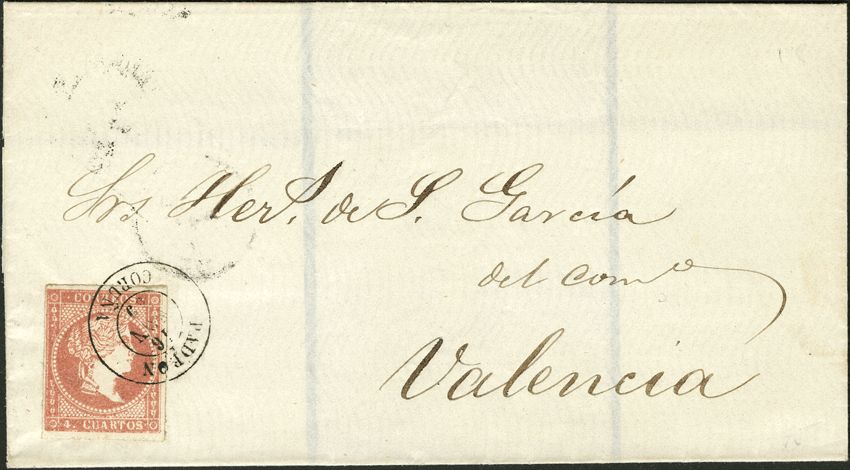 Srs Her.s de S. García
del com.o
Valencia
CORREOS
4. CUARTOS
PADRON
CORUÑA